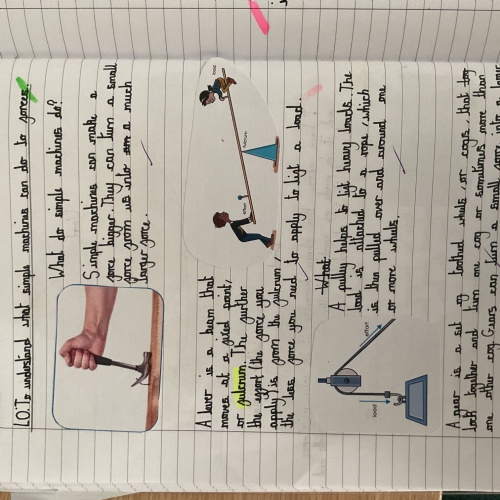 LO: To understand what simple machines can do to forces.
What do simple machines do?
Simple machines can make a
force bigger. They can turn a small
force into a much
larger force.
load
fulcrum
effort
A lever is a beam that
moves at a fixed point,
or fulcrum. The further
the effort (the force you
apply is from the fulcrum,
the less force you need to apply to lift a load.
What
A pulley helps to lift heavy loads. The
load is attached to a rope which
is then pulled over and around one
or more wheels.
effort
load
A gear is a set of toothed wheels, or cogs, that
lock together and turn one cog or sometimes more than
one other cog. Gears can turn a small force into a larger